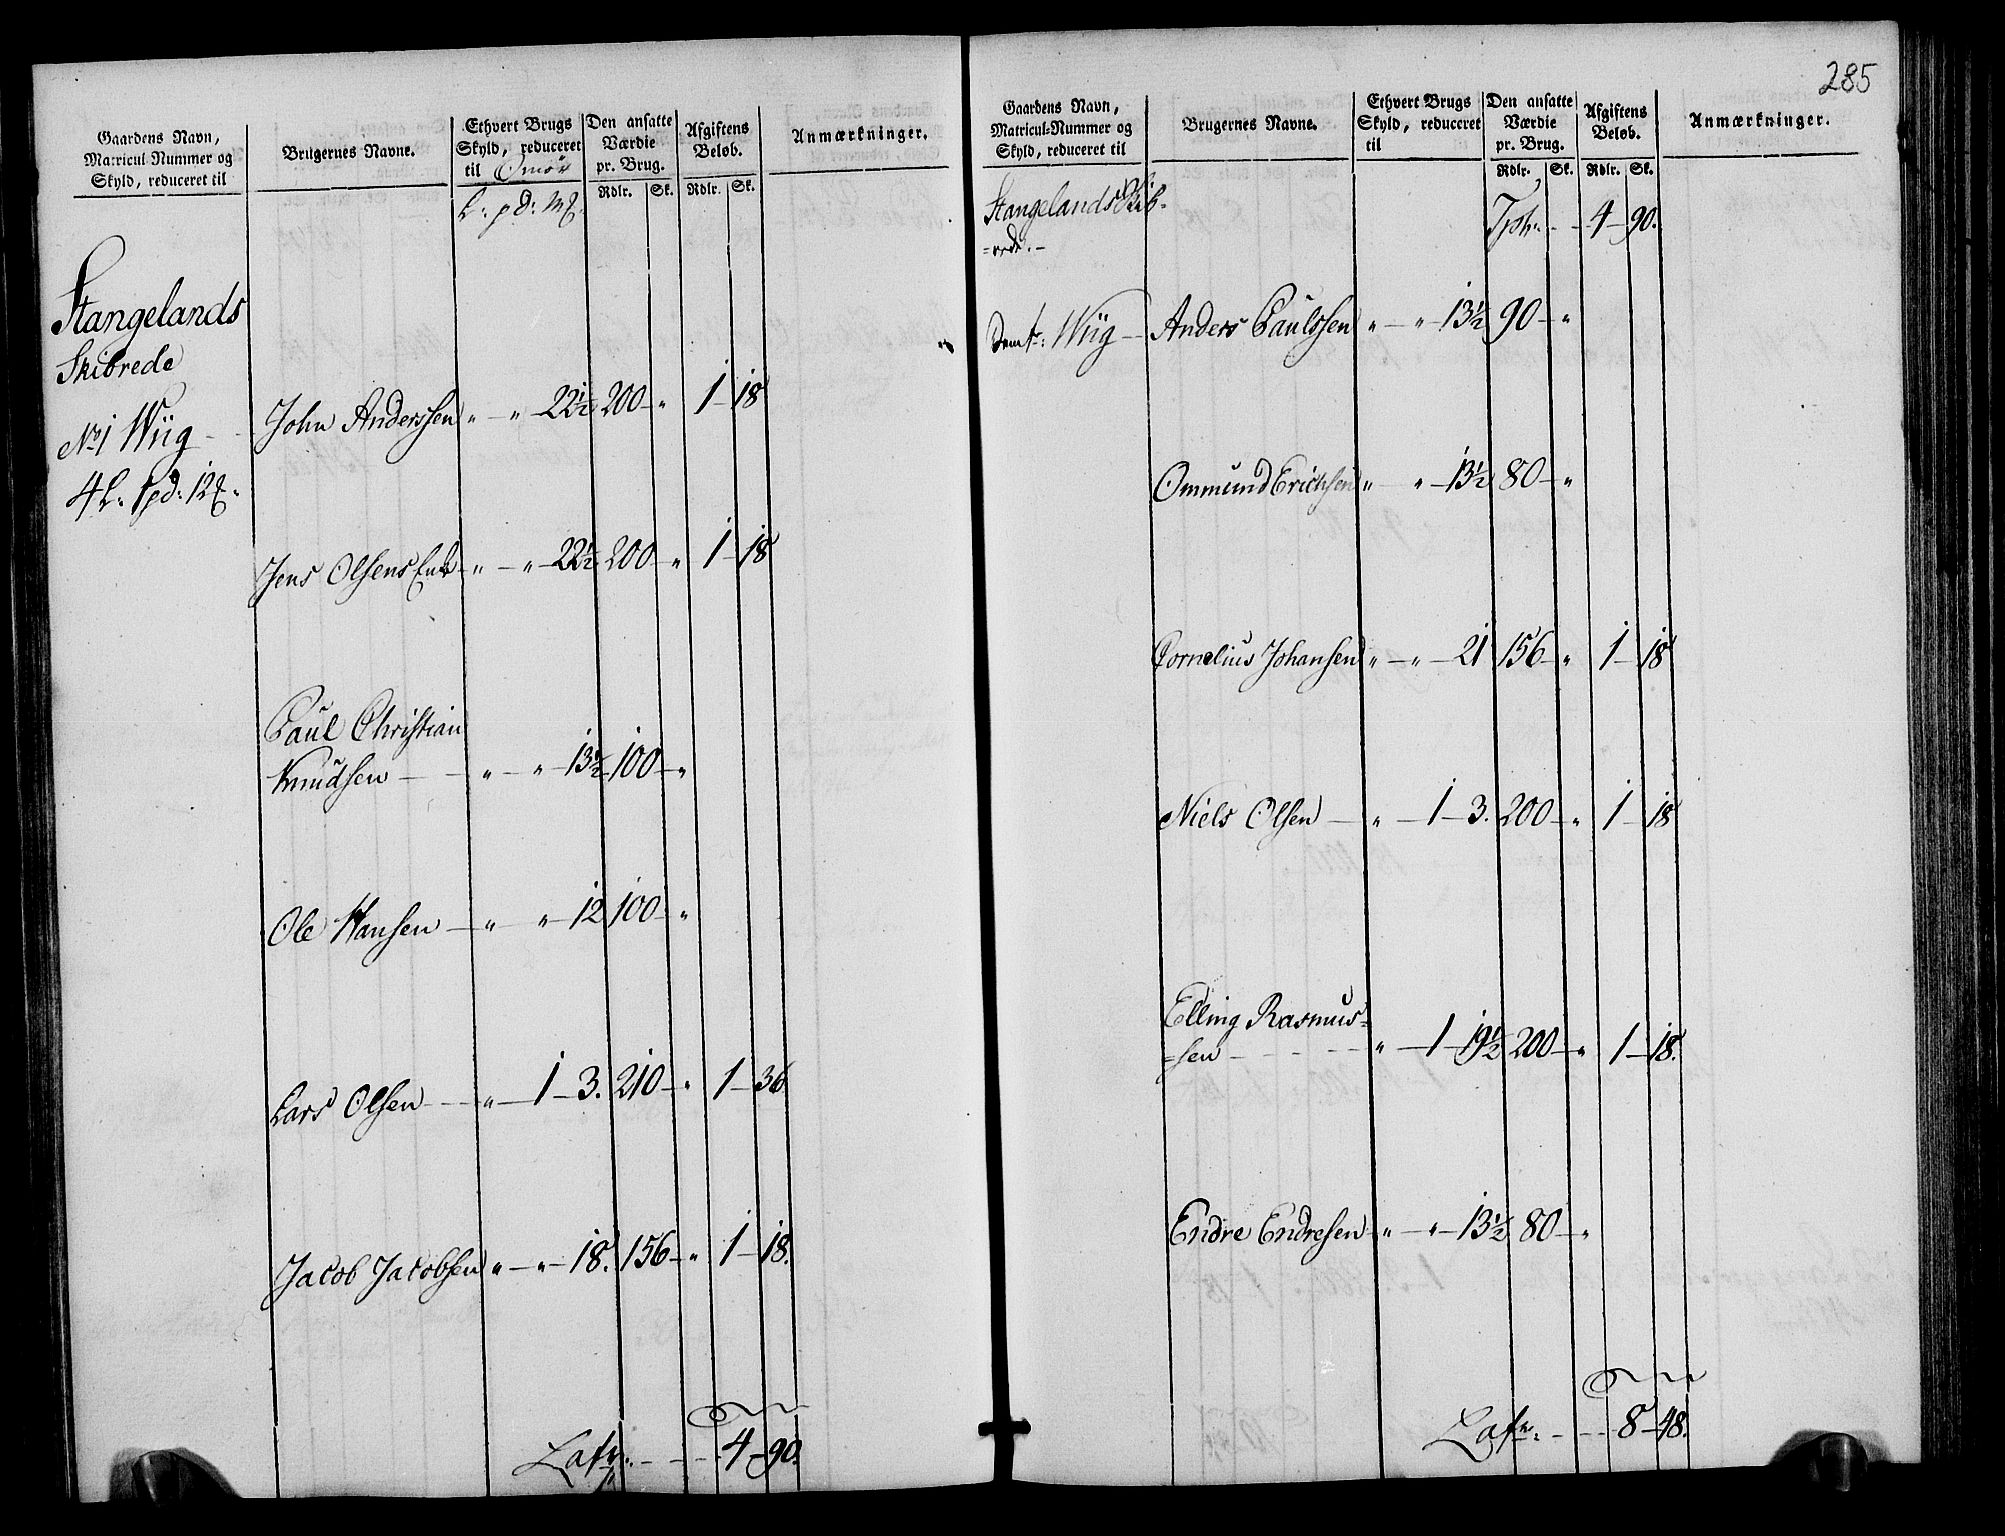 Gaardens Navn,
Matricul-Nummer og
Skyld, reduceret til
Brugernes Navne.
Ethvert Brugs
Skyld, reduceret
til Smør
Den ansatte
Værdie
pr. Brug.
Afgiftens
Beløb.
Anmærkninger.
Rdlr. Sk. Rdlr. Sk.
L: pd: m
Stangelands
Skibrede
No 1 Wiig
John Anderssen " — " — 22½ 200 — " 1 — 18
4 L: 1 pd: 12
Jens Olsens Enke — " — " — 22½ 200 — " 1 — 18
Paul Christian
Knudsen — — " — " — 13½ 100 — "
Ole Hansen — " " — 12 100 — "
Lars Olsen — — " — 1 — 3. 210 — " 1 — 36
Jacob Jacobsen " — " — 18. 156 — " 1 — 18.
Lat — — — 4 — 90.
285
Gaardens Navn,
Matricul-Nummer og
Skyld, reduceret til
Brugernes Navne.
Ethvert Brugs
Skyld, reduceret
til
Den ansatte
Værdie
pr. Brug.
Afgiftens
Beløb.
Anmærkninger.
Rdlr. Sk. Rdlr. Sk.
Stangelands Skib-
=rede. —
Tph: — — 4 — 90.
Wiig — Anders Paulssen " — " — 13½ 90 — "
Ommund Erichsen " " — 13½ 80 — "
Cornelius Johansen " — " — 21 156 — " 1 — 18
Niels Olsen — " — 1 — 3. 200 — " 1 — 18
Elling Rasmus=
=sen — — — — " — 1 — 19½ 200 — " 1 — 18.
Endre Endresen " — " — 13½ 80 — "
Lat: — — — 8 — 48.